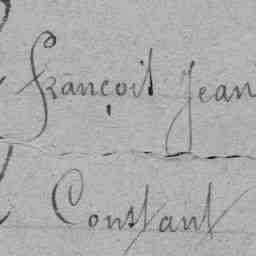 François Jean
Constant